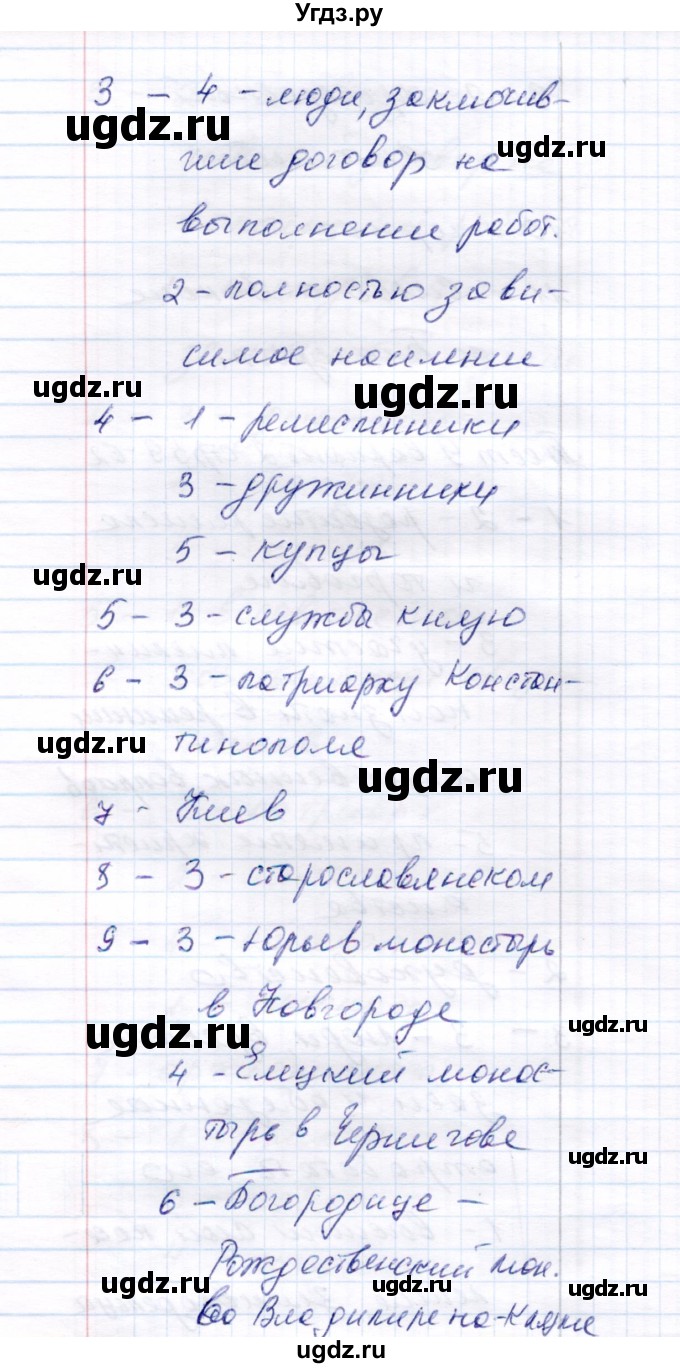 Угдз.ру
3 – 4 – люди, заключив-
ugdz.ru
ugdz.ru
шие договор на
выполнение работ.
2 – полностью зави-
симое население
ugdz.ru
ugdz.ru
4 – 1 – ремесленники
3 – дружинники
5 – купцы
ugdz.ru
5 – 3 – службы князю
6 – 3 – патриарху Констан-
тинополя
ugdz.ru
ugdz.ru
7 – Киев
8 – 3 – старославянском
9 – 3 – Юрьев монастырь
в Новгороде
ugdz.ru
ugdz.ru
4 – Елецкий монас-
тырь в Чернигове
ugdz.ru
6 – Богородице –
Рождественский мон.
ugdz.ru
ugdz.ru
ugdz.ru
во Владимире-на-Клязме
ugdz.ru